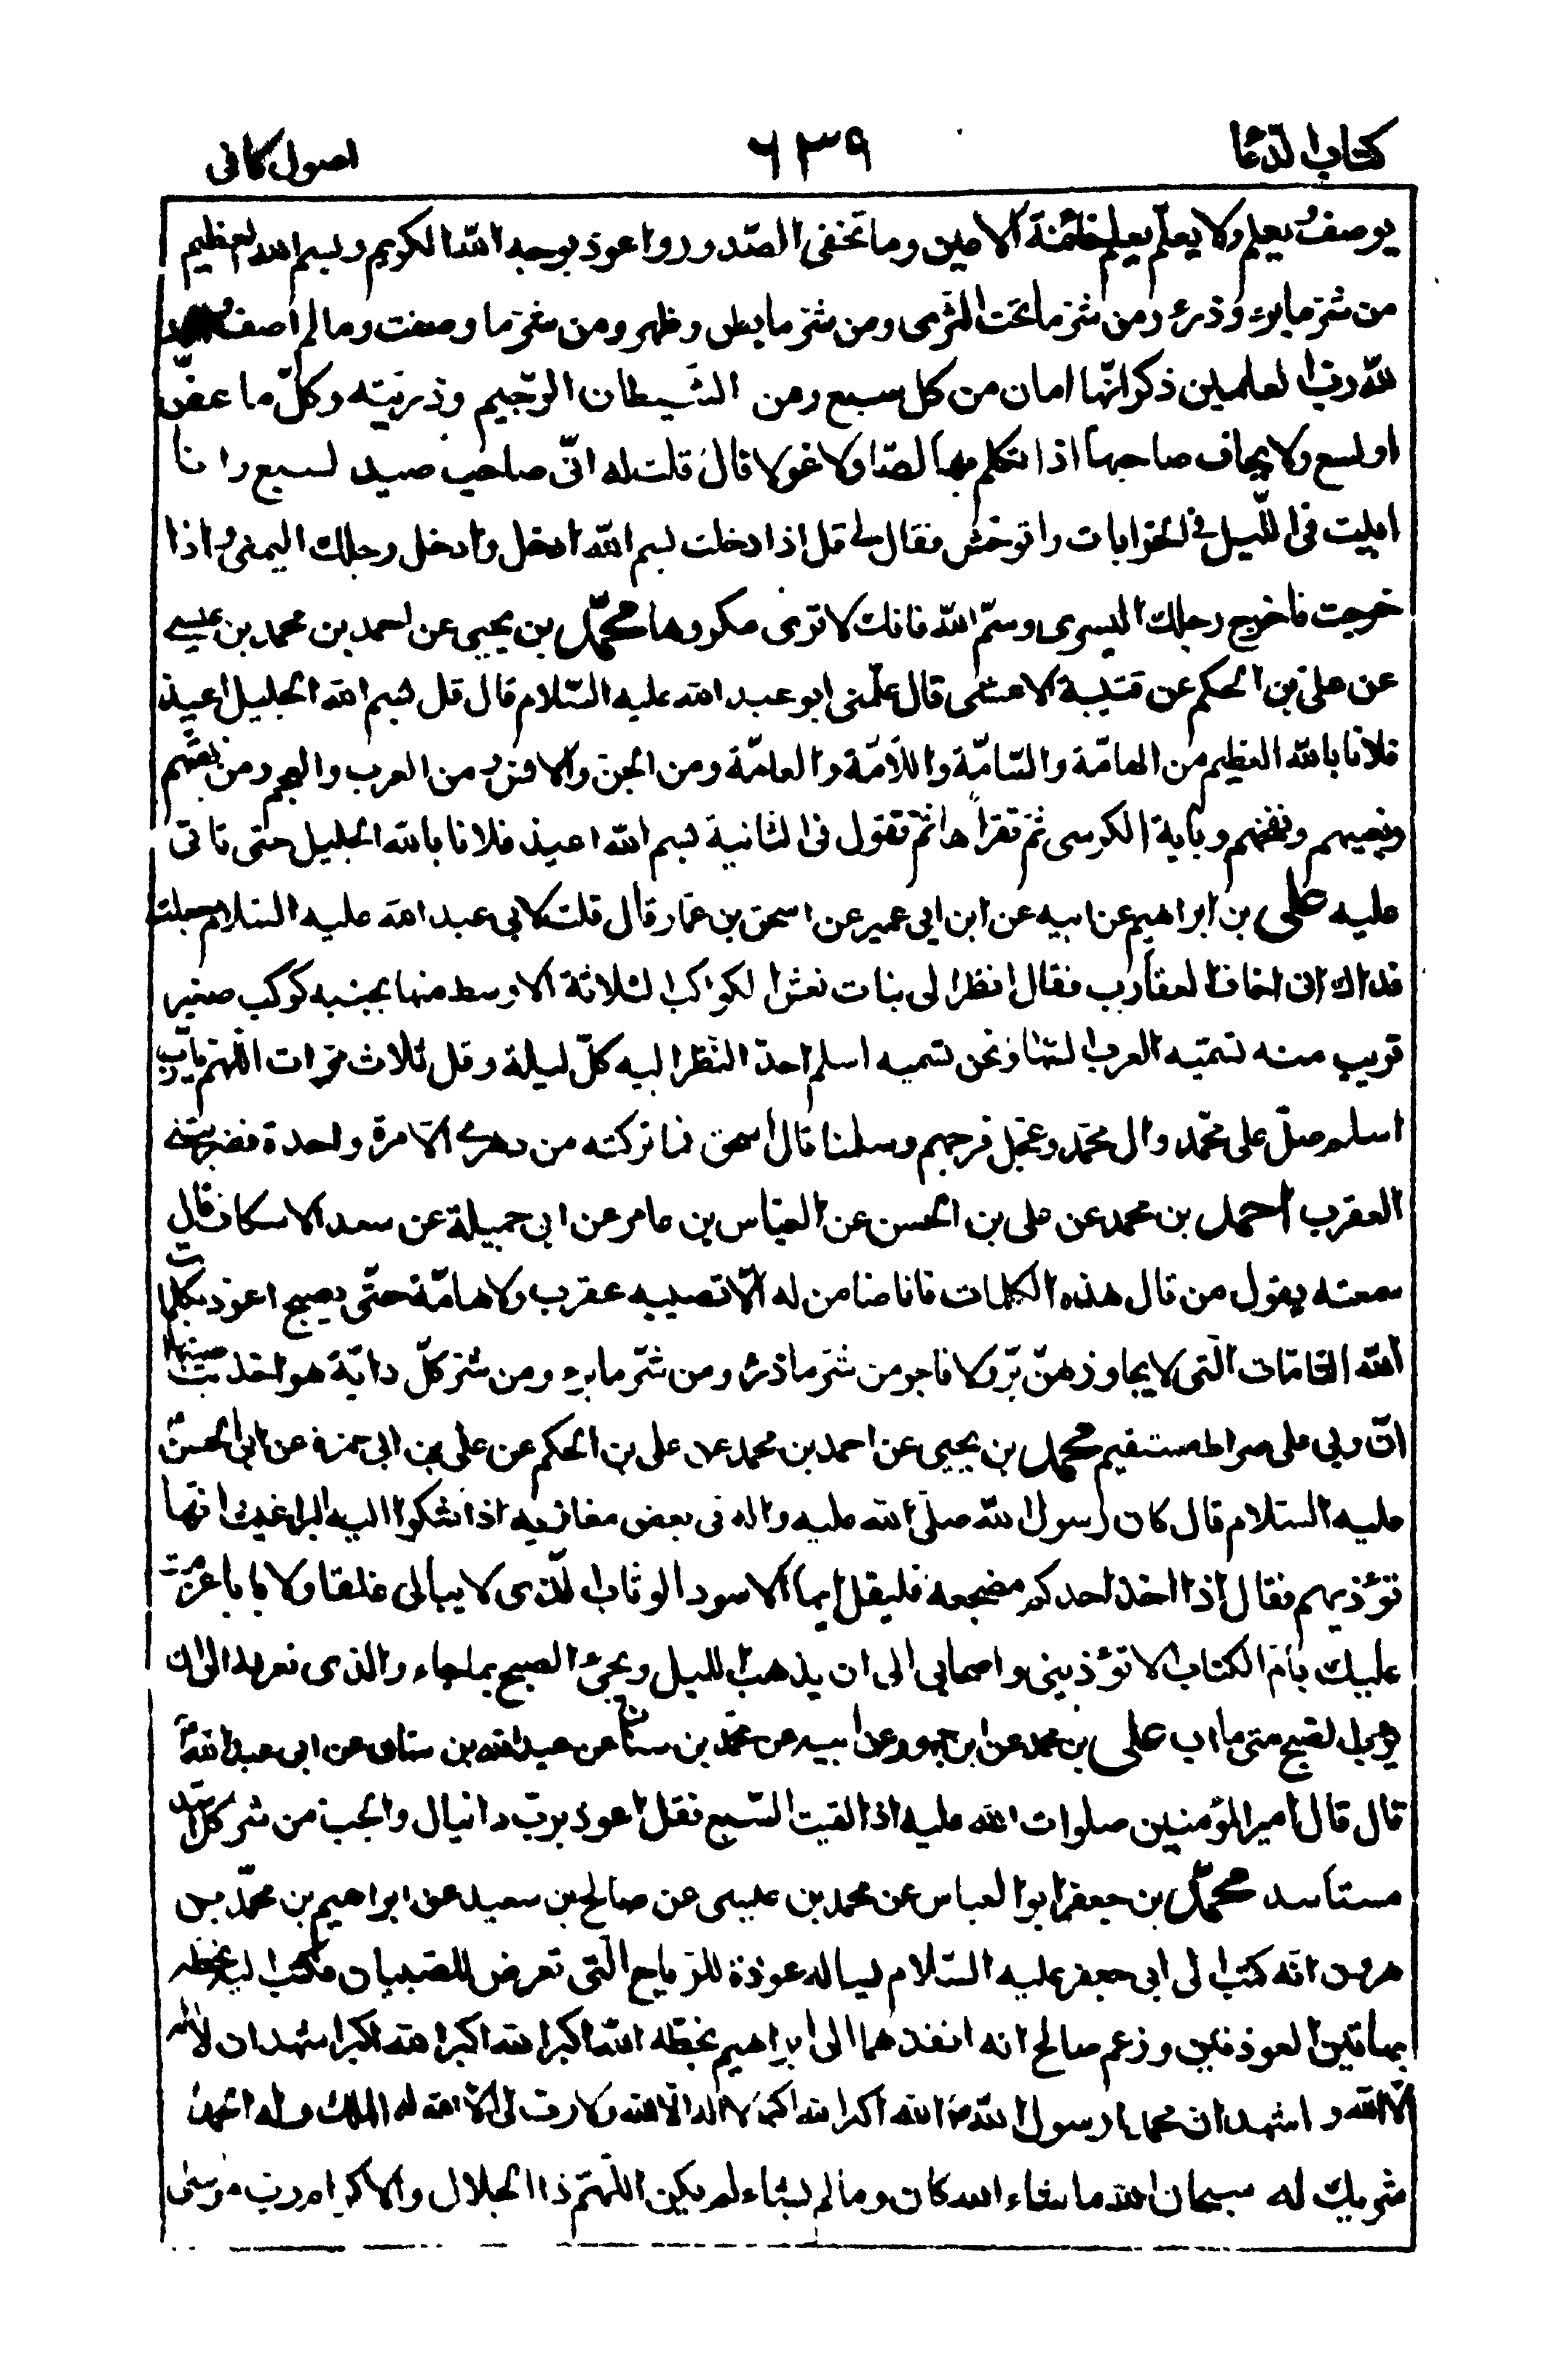 كتاب الدعا
٦٣٩
اصول كافى
يوصف يعلم ولا يعلّم يعلم خائنة الاعين وما تخفى الصّدور واعوذ بوجه الله الكريم وبسم الله العظيم
من شرّ ما برء وذرء ومن شرّ ما تحت الثرى ومن شرّ ما بطن وظهر ومن شرّ ما وصفت وما لم اصف والحمد
لله ربّ العلمين ذكر انّها امان من كل سبع ومن الشّيطان الرّجيم وذرّيّته وكلّ ما عضّ
او لسع ولا يخاف صاحبها اذا تكلم بها لصّا ولا غولا قال قلت له انّى صاحب صيد لسبع وانا
ابيت فى اللّيل فى الخرابات واتوحّش فقال لى قل اذا دخلت بسم الله ادخل وادخل رجلك اليمنى واذا
خرجت فاخرج رجلك اليسرى وسمّ الله فانك لا ترى مكروها محمّد بن يحيى عن احمد بن محمد بن عيسى
عن على بن الحكم عن قتيبة الاعشى قال علّمنى ابو عبد الله عليه السّلام قال قل بسم الله الجليل اعيذ
فلانا بالله العظيم من الهامّة والسّامّة واللّامّة والعامّة ومن الجنّ والانس ومن العرب والعجم ومن نفثهم
وبغيهم ونفخهم وباية الكرسى ثمّ تقرأها ثمّ تقول فى الثانية بسم الله اعيذ فلانا بالله الجليل حتى تاتى
عليه على بن ابراهيم عن ابيه عن ابن ابى عمير عن اسحق بن عمّار قال قلت لابى عبد الله عليه السّلام جعلت
فداك انى اخاف العقارب فقال انظر الى بنات نعش الكواكب الثلاثة الاوسط منها بجنبه كوكب صغير
قريب منه تسمّيه العرب السّها ونحن نسميه اسلم احدّ النّظر اليه كلّ ليلة وقل ثلاث مرّات اللّهم يا ربّ
اسلم صلّ على محمّد وال محمّد وعجّل فرجهم وسلمنا قال اسحق فما تركته من دهرى الّا مرة واحدة فضربتنى
العقرب احمد بن محمد عن على بن الحسن عن العبّاس بن عامر عن ابى جميلة عن سعد الاسكاف قال
سمعته يقول من قال هذه الكلمات فانا ضامن له الّا تصيبه عقرب ولا هامّة حتّى يصبح اعوذ بكلمات
الله التامّات الّتى لا يجاوزهنّ برّ ولا فاجر من شرّ ما ذرء ومن شرّ ما برء ومن شرّ كلّ دابّة هو اخذ بناصيتها
انّ ربى على صراط مستقيم محمد بن يحيى عن احمد بن محمد عن على بن الحكم عن على بن ابى حمزة عن ابى الحسن
عليه السّلام قال كان رسول الله صلّى الله عليه واله فى بعض مغازيه اذا شكوا اليه البراغيث انّها
تؤذيهم فقال اذا اخذ احدكم مضجعه فليقل ايها الاسود الوثاب الّذى لا يبالى غلقا ولا بابا عزمت
عليك بامّ الكتاب الا تؤذينى واصحابى الى ان يذهب الليل ويجئ الصبح بما جاء والذى نعرفه الى ان
يؤب الصبح متى ما اب على بن محمد عن ابن جمهور عن ابيه عن محمّد بن سنان عن عبد الله بن سنان عن ابى عبد الله
قال قال امير المؤمنين صلوات الله عليه اذا لقيت السّبع فقل اعوذ بربّ دانيال والجب من شر كل اسد
مستاسد محمّد بن جعفر ابو العباس عن محمد بن عيسى عن صالح بن سعيد عن ابراهيم بن محمّد بن
هرون انّه كتب الى ابى جعفر عليه السّلام يساله عوذة للرّياح الّتى تعرض للصّبيان فكتب اليه بخطه
بهاتين العوذتين وزعم صالح انه انفذهما الى ابراهيم بخطّه الله اكبر الله اكبر الله اكبر اشهد ان لا اله
الا الله واشهد ان محمدا رسول الله الله اكبر الله اكبر لا اله الّا الله ولا رب لى الّا الله له الملك وله الحمد لا
شريك له سبحان الله ما شاء الله كان وما لم يشاء لم يكن اللّهمّ ذا الجلال والاكرام ربّ موسى